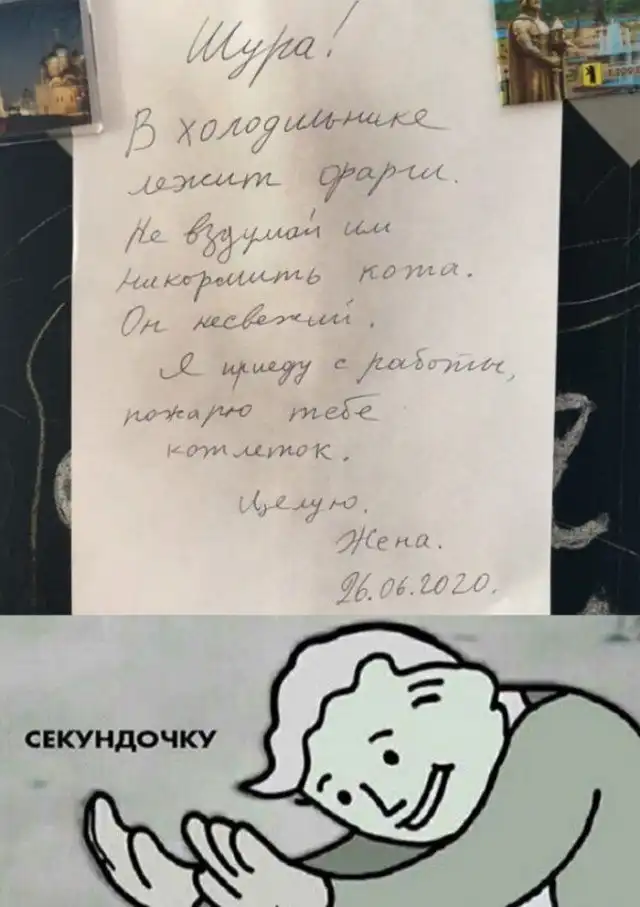 Шура!
В холодильнике
лежит фарш.
Не вздумай им
накормить кота.
Он несвежий.
Я приеду с работы,
пожарю тебе
котлеток.
Целую.
Жена.
26.06.2020.
СЕКУНДОЧКУ